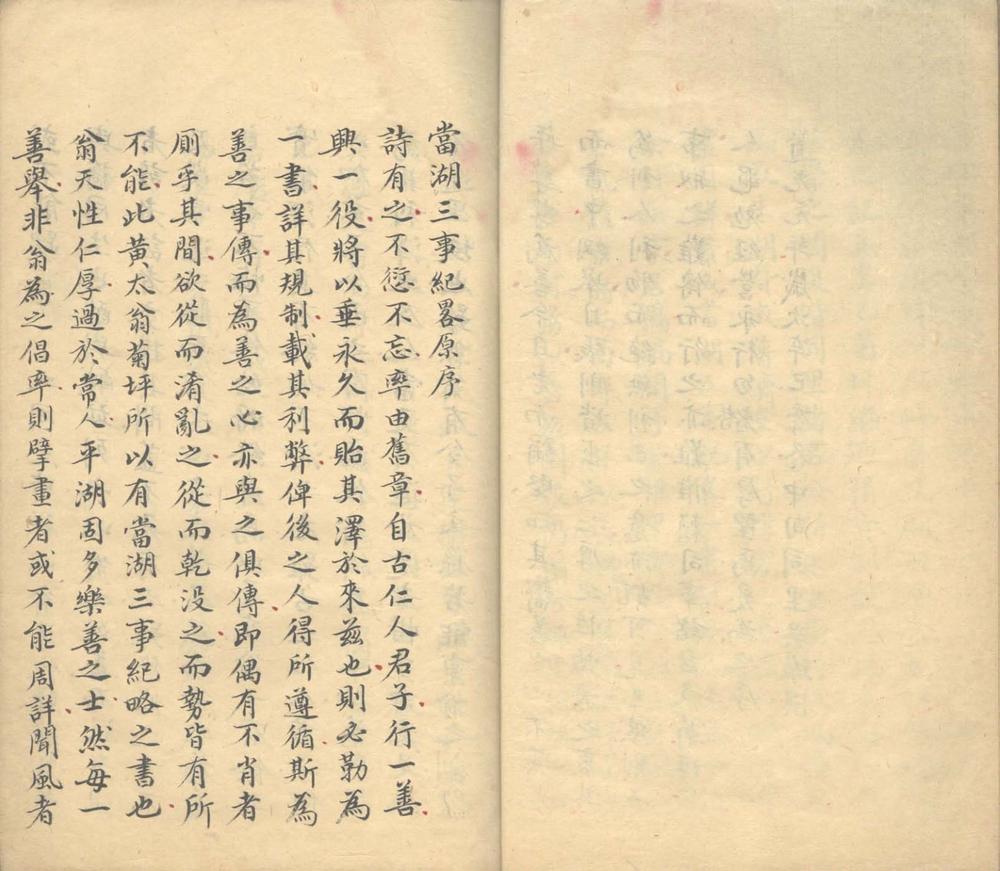 當湖三事紀畧原序
詩有之不愆不忘率由舊章自古仁人君子行一善
興一役將以垂永久而貽其澤於來茲也則必勒為
一書詳其規制載其利弊俾後之人得所遵循斯為
善之事傳而為善之心亦與之俱傳即偶有不肖者
厠乎其間欲從而淆亂之從而乾没之而勢皆有所
不能此黃大翁菊坪所以有當湖三事紀略之書也
翁天性仁厚過於常人平湖固多樂善之士然每一
善舉非翁為之倡率則擘畫者或不能周詳聞風者